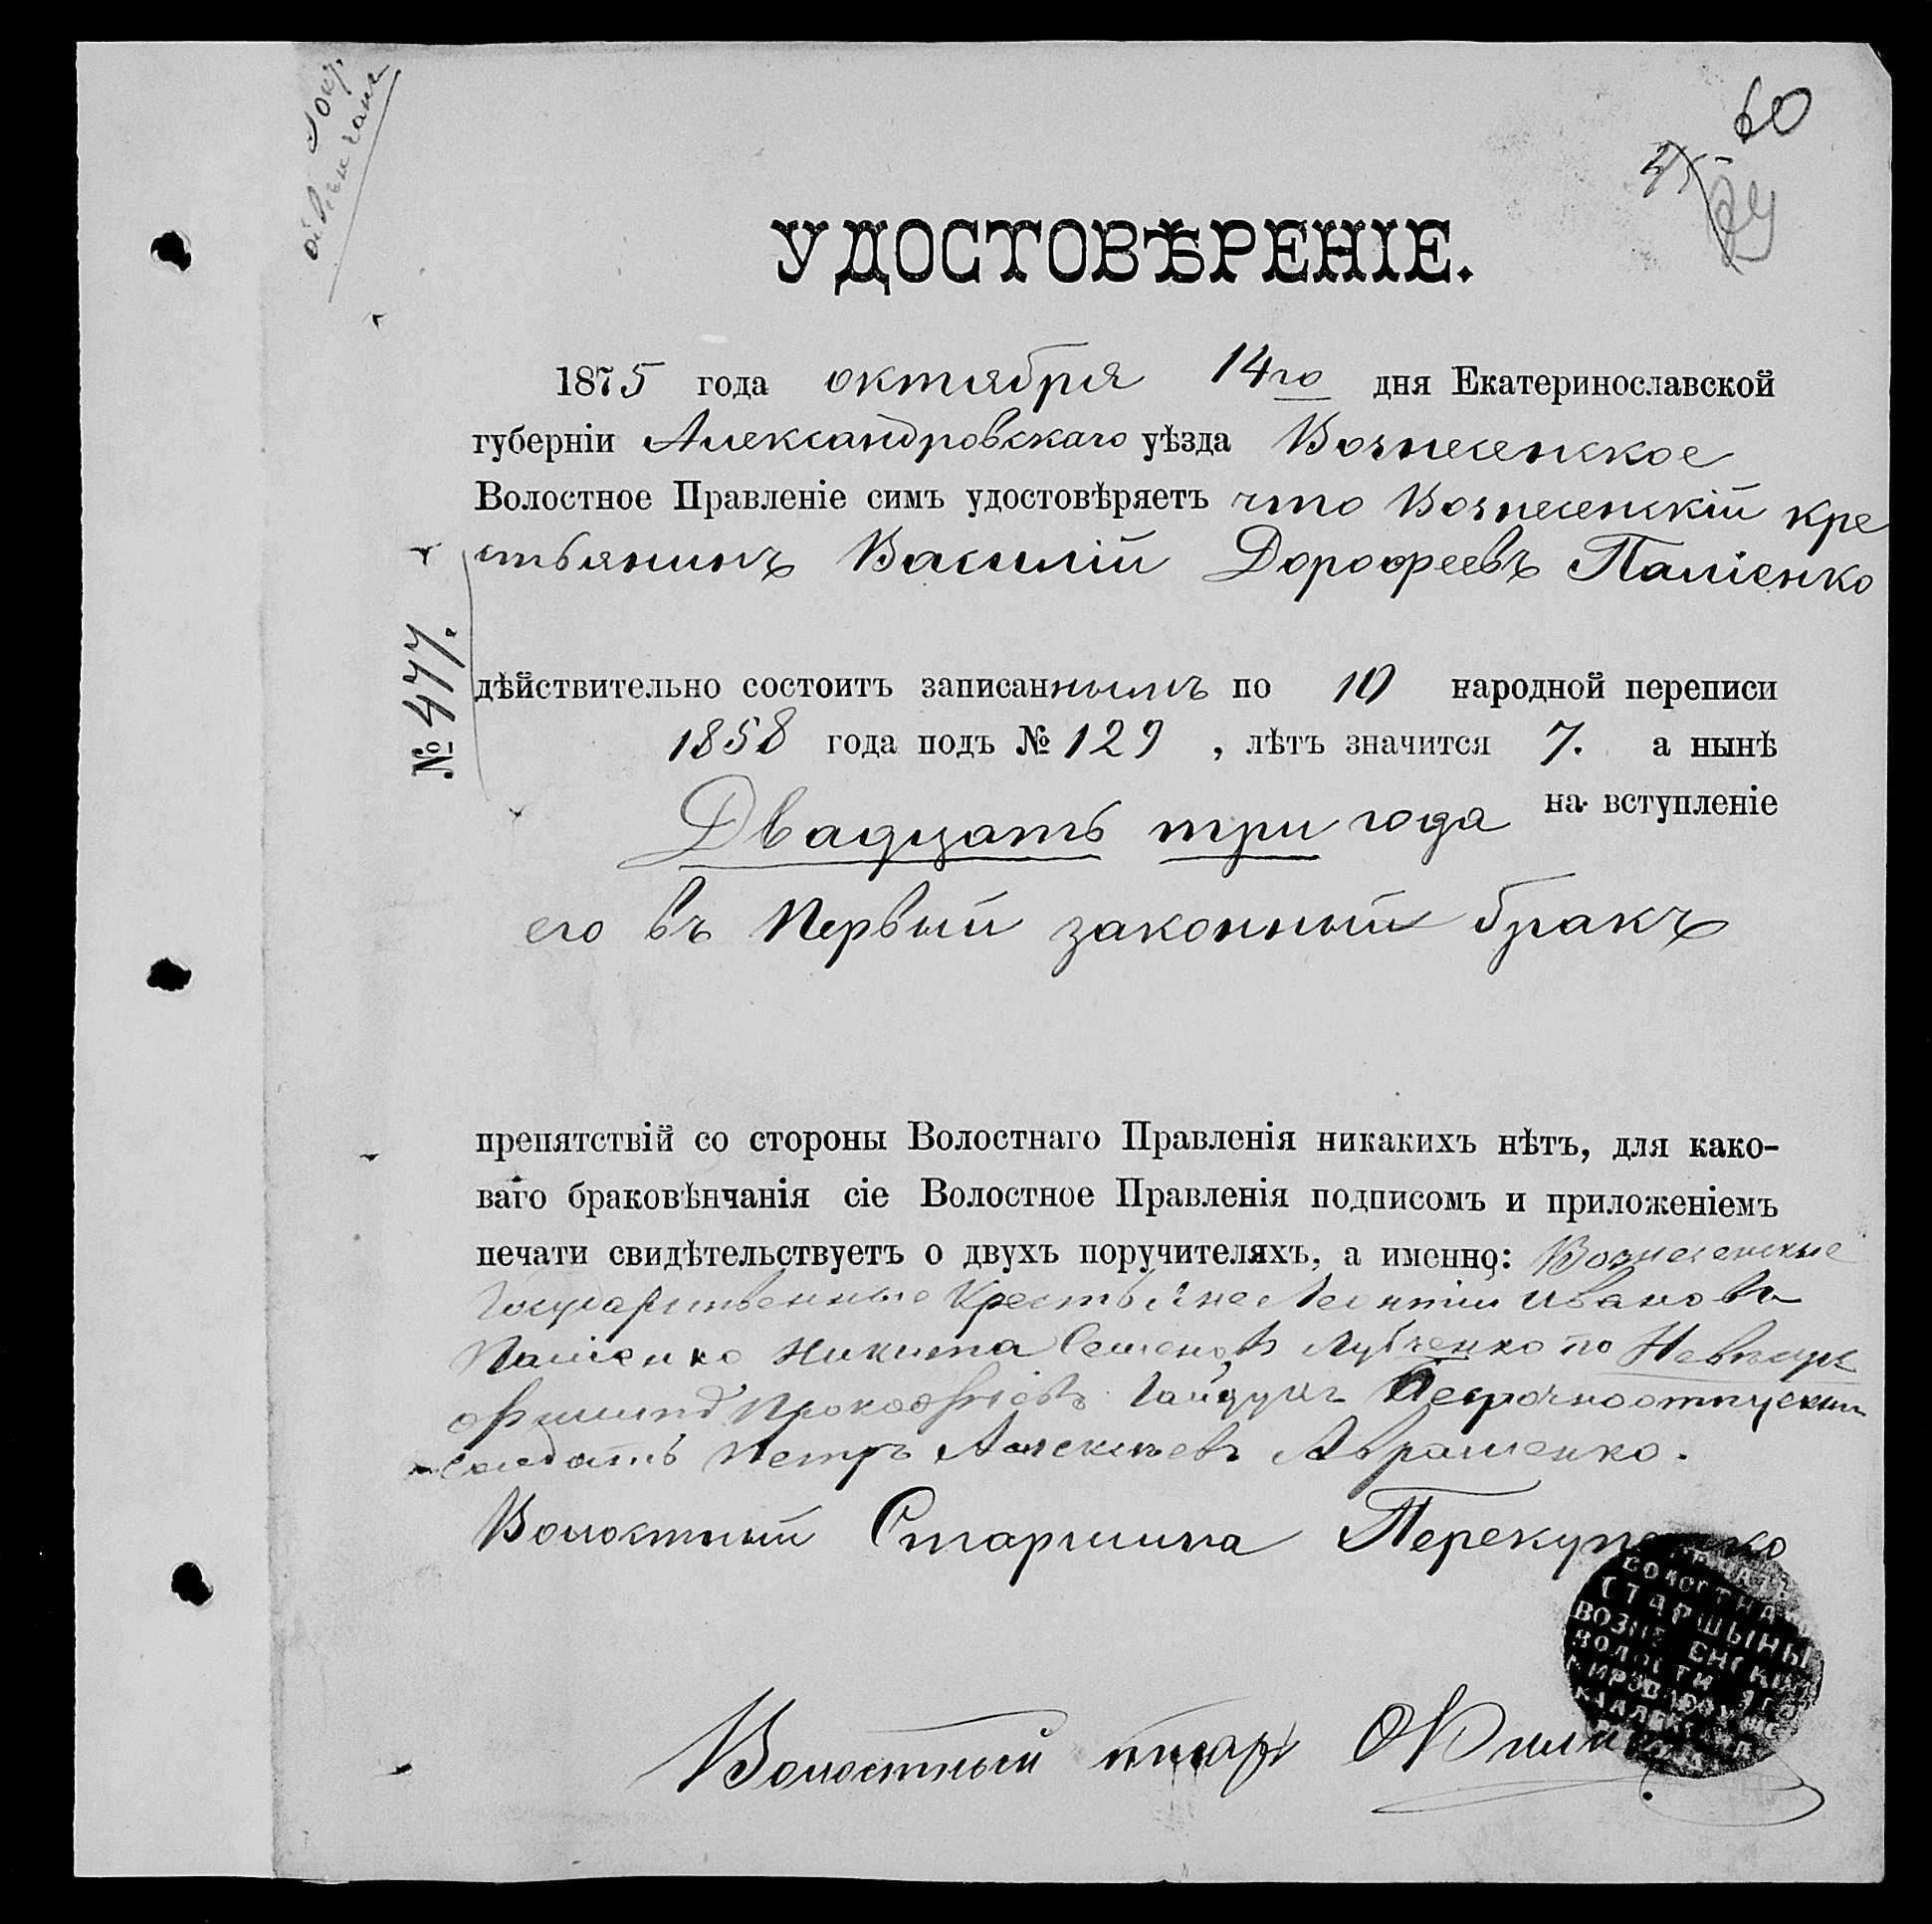 60
УДОСТОВѢРЕНІЕ.
1875 года октября 14го дня Екатеринославской
губерніи Александровскаго уѣзда Вознесенское
Волостное Правленіе симъ удостовѣряетъ что Вознесенскій кре
стьянинъ Василій Дорофеевъ Паліенко
№ 477.
дѣйствительно состоитъ записаннымъ по 10 народной переписи
1858 года подъ № 129, лѣтъ значится 7. а нынѣ
Двадцать три года на вступленіе
его въ Первый законный бракъ
препятствій со стороны Волостнаго Правленія никакихъ нѣтъ, для како-
ваго браковѣнчанія сіе Волостное Правленія подписомъ и приложеніемъ
печати свидѣтельствуетъ о двухъ поручителяхъ, а именно: Вознесенские
Государственные Крестьяне Леонтий Ивановъ
Паліенко Никита Семеновъ по
Прокофіевъ Гайдукъ Безсрочноотпускн
Солдатъ Петръ Алексеевъ Авраменко.
Волостный Старшина
ВОЛОСТНА
СТАРШЫНЫ
ВОЛОСТИ
Волостный писарь